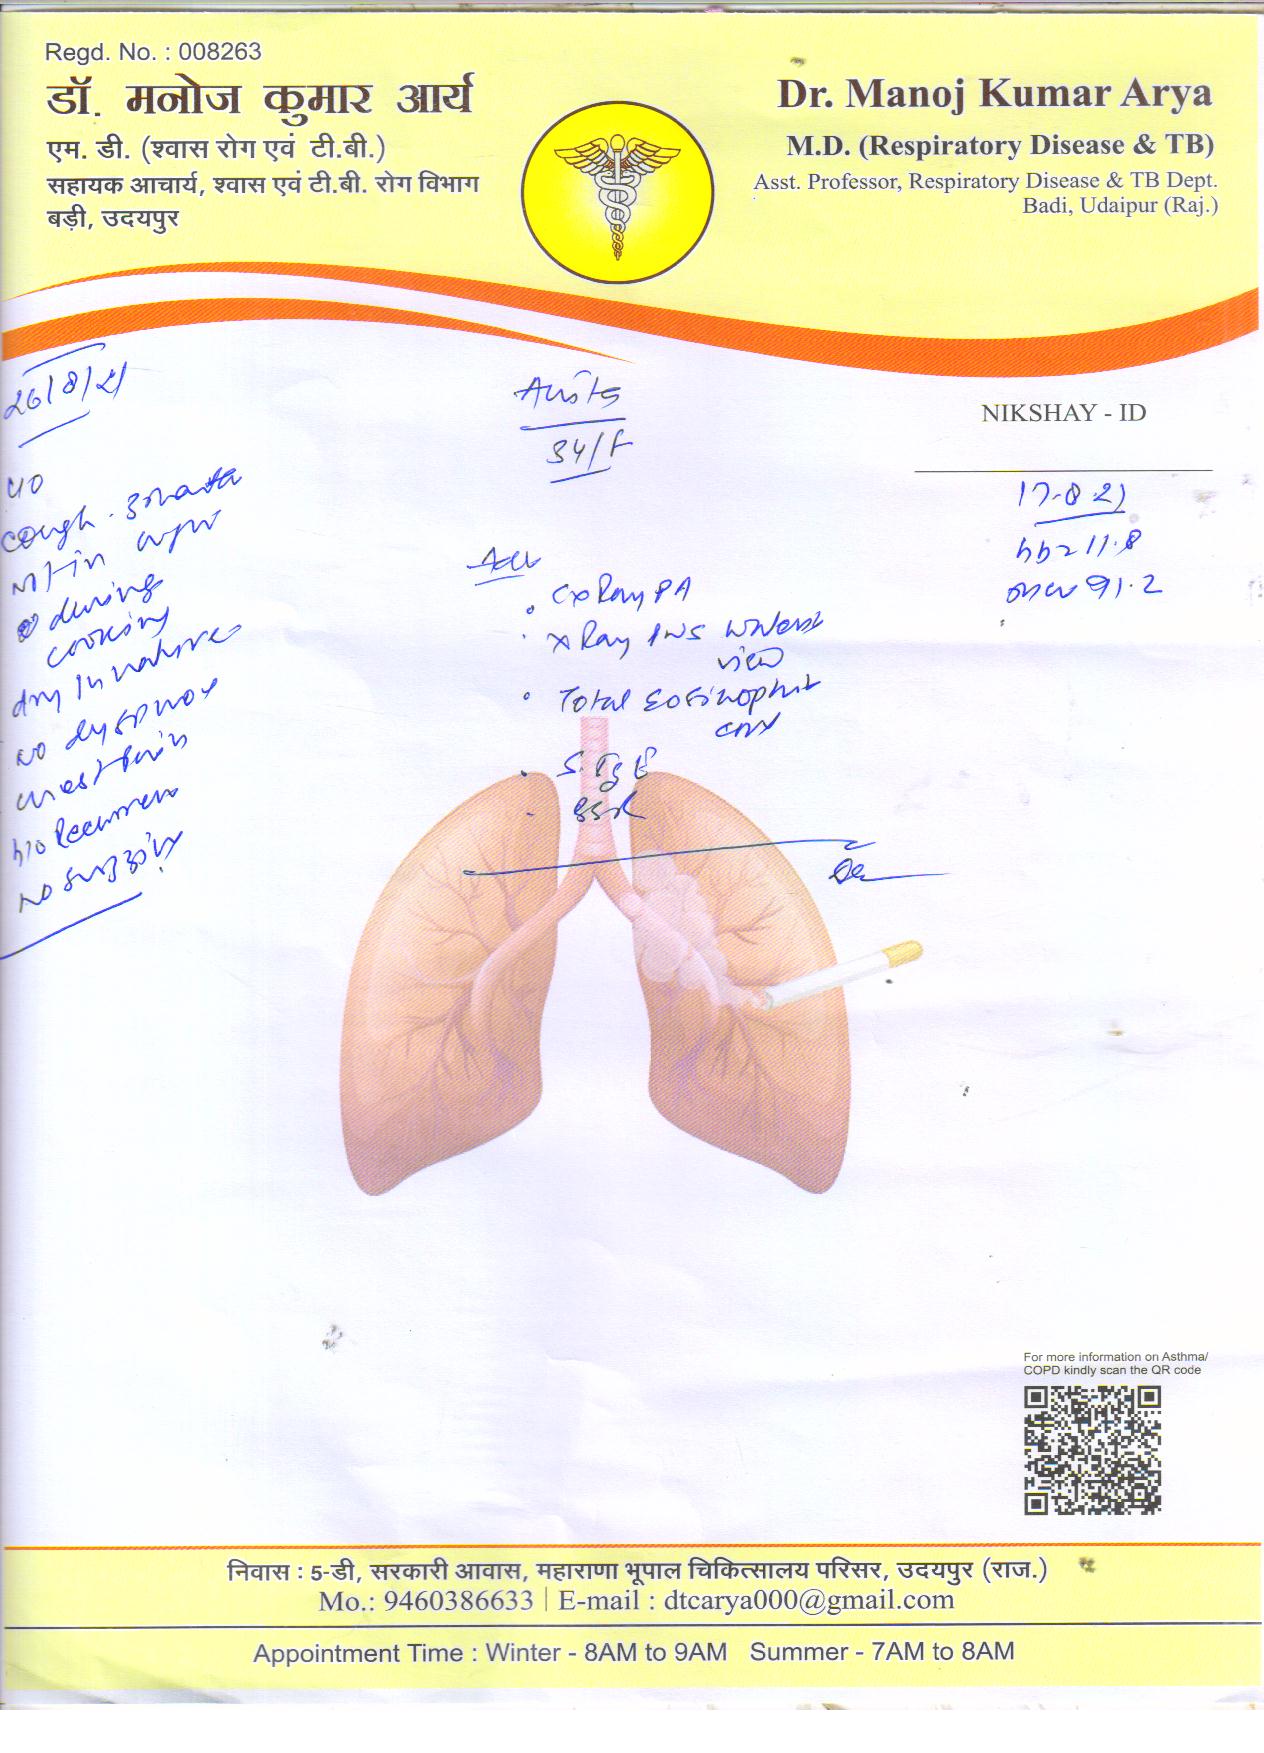 Regd. No. : 008263
डॉ. मनोज कुमार आर्य
एम. डी. (श्वास रोग एवं टी.बी.)
सहायक आचार्य, श्वास एवं टी.बी. रोग विभाग
बड़ी, उदयपुर
Dr. Manoj Kumar Arya
M.D. (Respiratory Disease & TB)
Asst. Professor, Respiratory Disease & TB Dept.
Badi, Udaipur (Raj.)
26/8/21
34/F
NIKSHAY - ID
17-8-21
hb= 11.8
91.2
c/o
cough -
during
cooking
dry in nature
no
no
Adv
CxRay PA
x Ray PNS waters
view
Total Eosinophil
S. IgE
For more information on Asthma/
COPD kindly scan the QR code
निवास : 5-डी, सरकारी आवास, महाराणा भूपाल चिकित्सालय परिसर, उदयपुर (राज.)
Mo.: 9460386633 | E-mail : dtcarya000@gmail.com
Appointment Time : Winter - 8AM to 9AM Summer - 7AM to 8AM